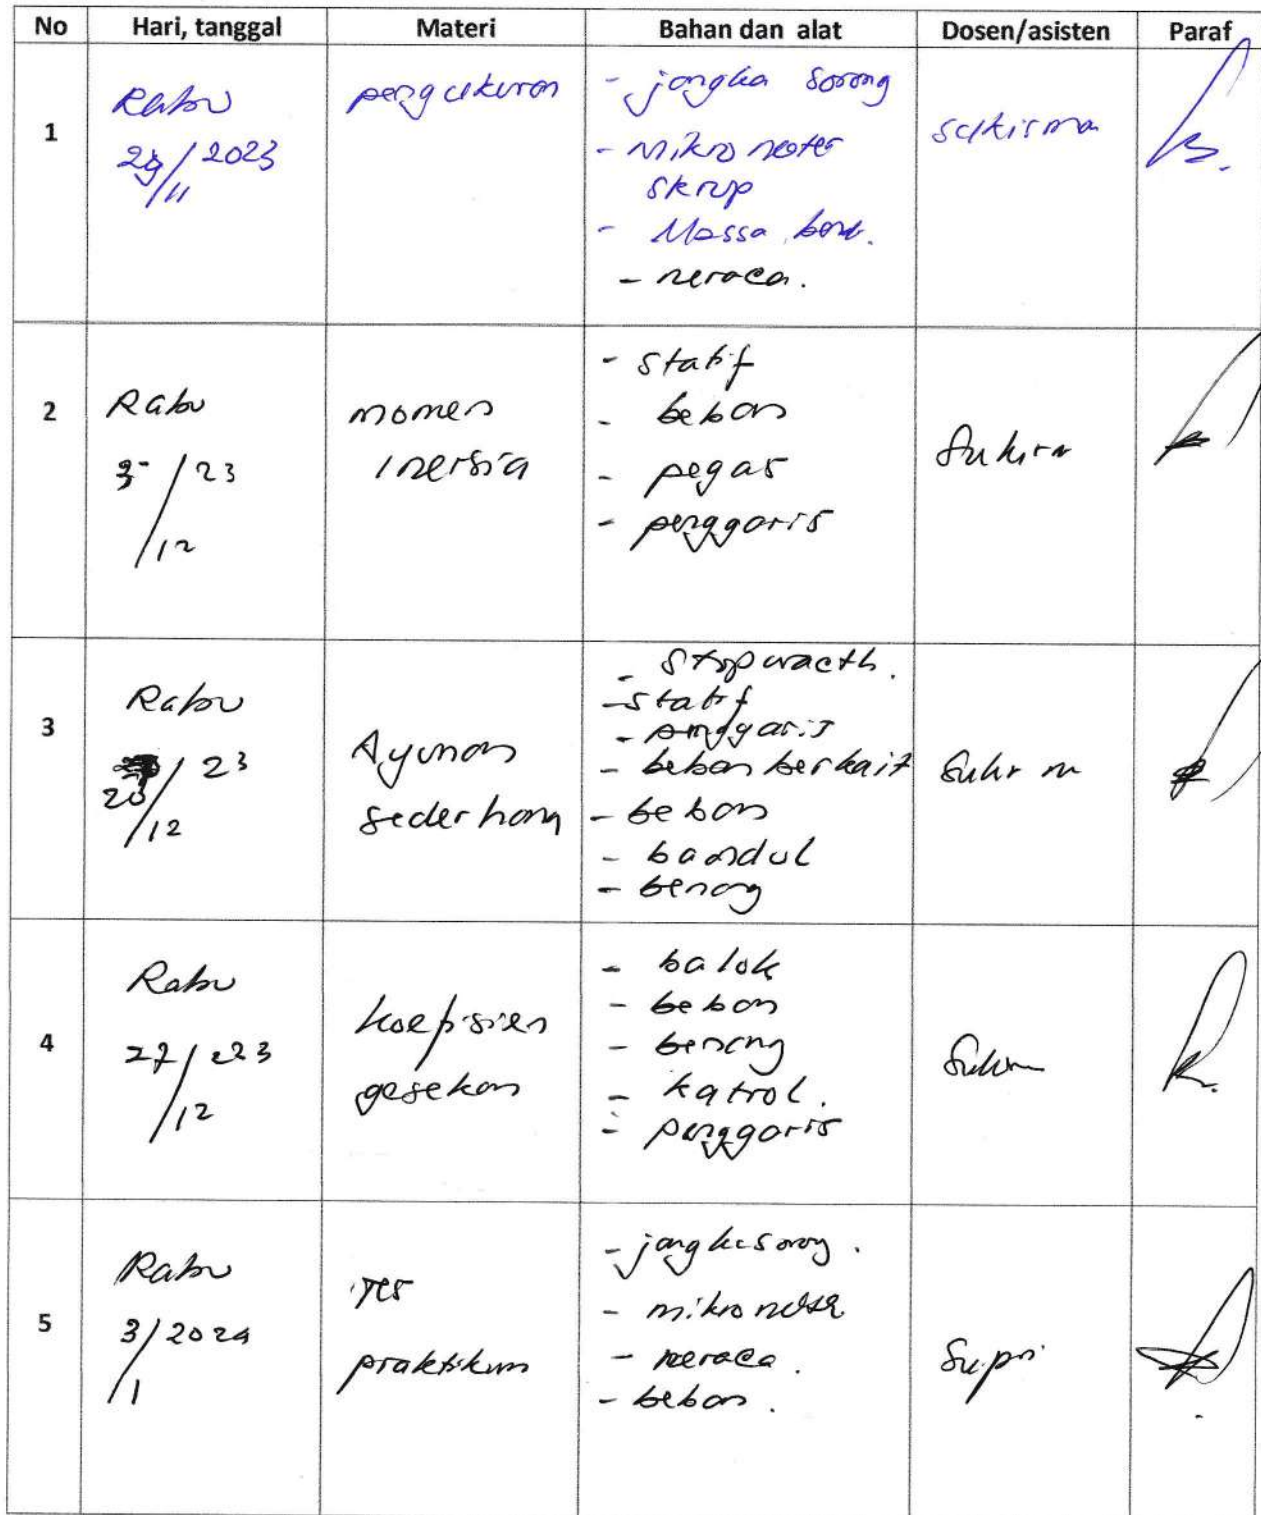 No Hari, tanggal Materi Bahan dan alat Dosen/asisten Paraf
1
Rabu
29/11 2023
pengukuran
- jangka sorong
- mikro meter
skrup
- Massa
- neraca.
2
Rabu
/ 23
12
momen
inersia
- statif
- beban
- pegas
- penggaris
3
Rabu
20/12 23
Ayunan
sederhana
- stopwacth.
- statif
- penggaris
- beban berkait
- beban
- bandul
- benang
4
Rabu
27/12
koefisien
gesekan
- balok
- beban
- benang
- katrol.
- penggaris
5
Rabu
3/1 2024
Tes
praktikum
- jangka sorong.
- mikrometer
- neraca.
- beban.
Supri